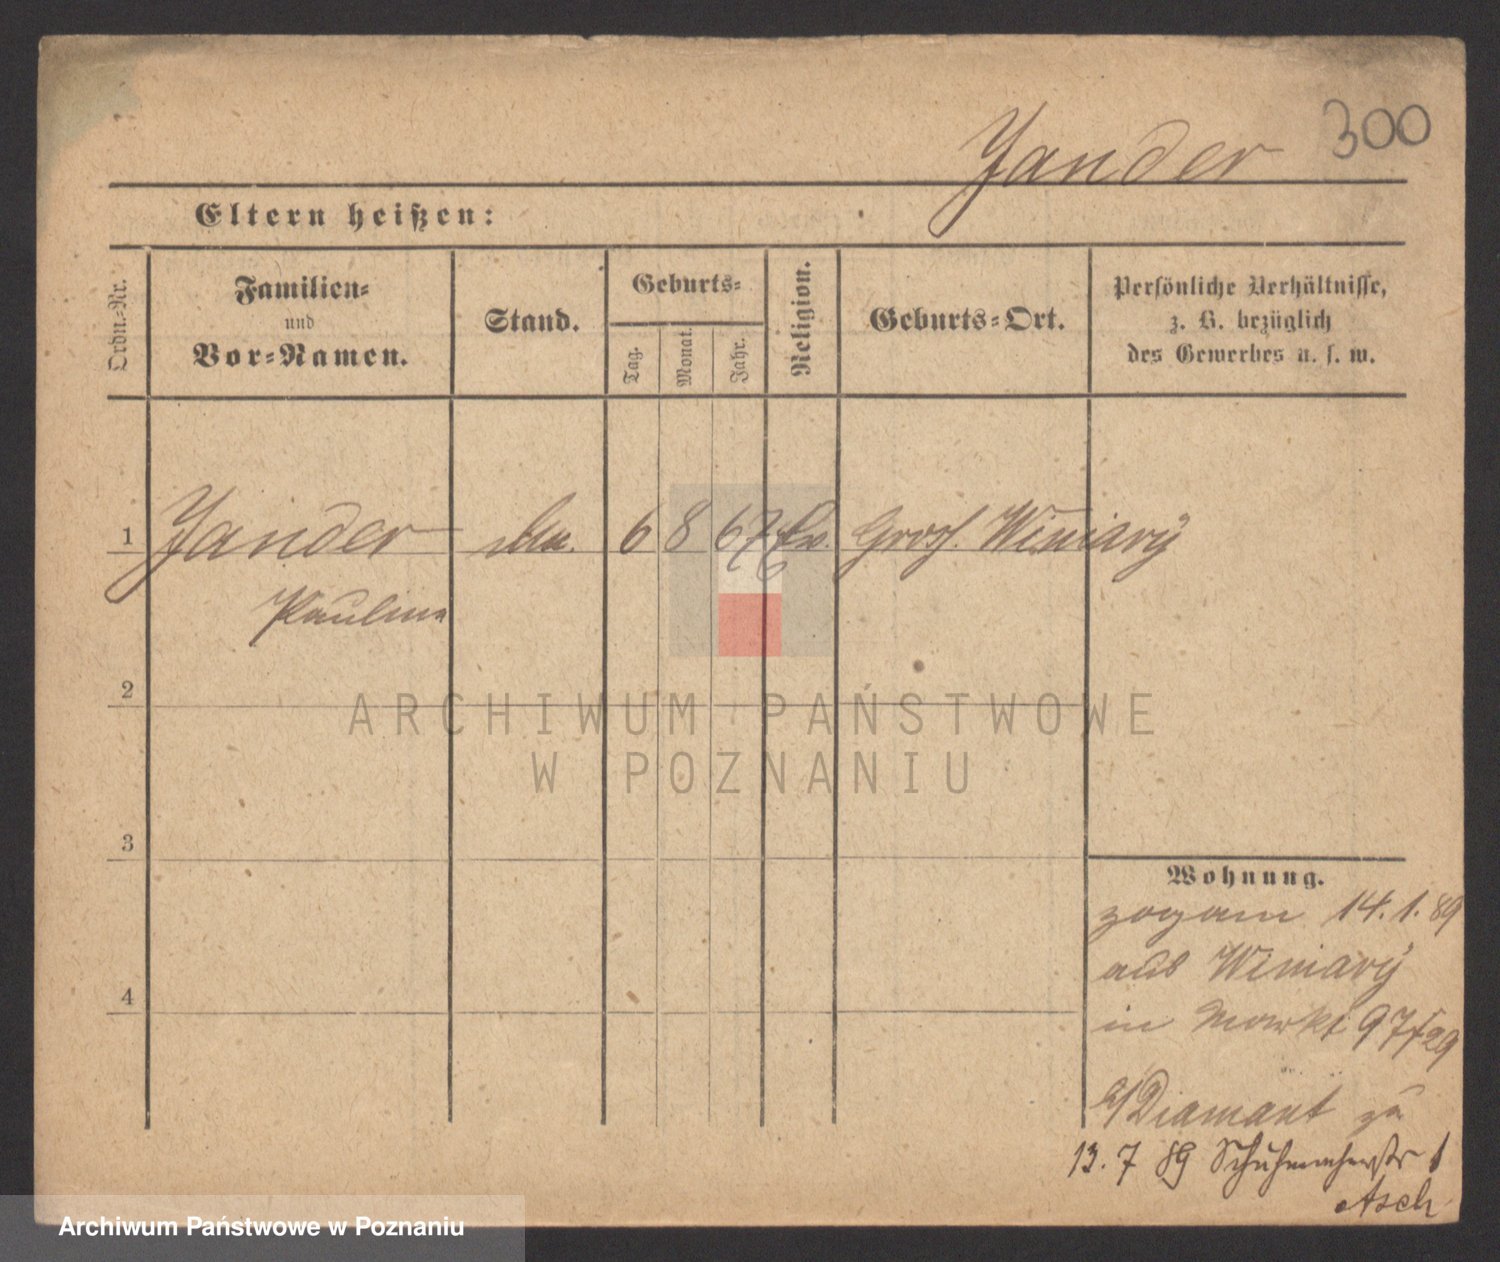 300
Jander
Eltern heißen:
Ordn.-Nr.
Familien-
und
Vor-Namen.
Stand.
Geburts-
Tag.
Monat.
Jahr.
Religion.
Geburts-Ort.
Persönliche Verhältnisse,
z. B. bezüglich
des Gewerbes u. s. w.
1 Jander 6 8 67 Ev. Gross. Winiary
Pauline
2
ARCHIWUM PAŃSTWOWE
W POZNANIU
3
Wohnung.
14. 1. 89
aus Winiary
in Markt 97
4
Diamant zu
13. 7 89 Schuhmacherstr 1
Asch
Archiwum Państwowe w Poznaniu